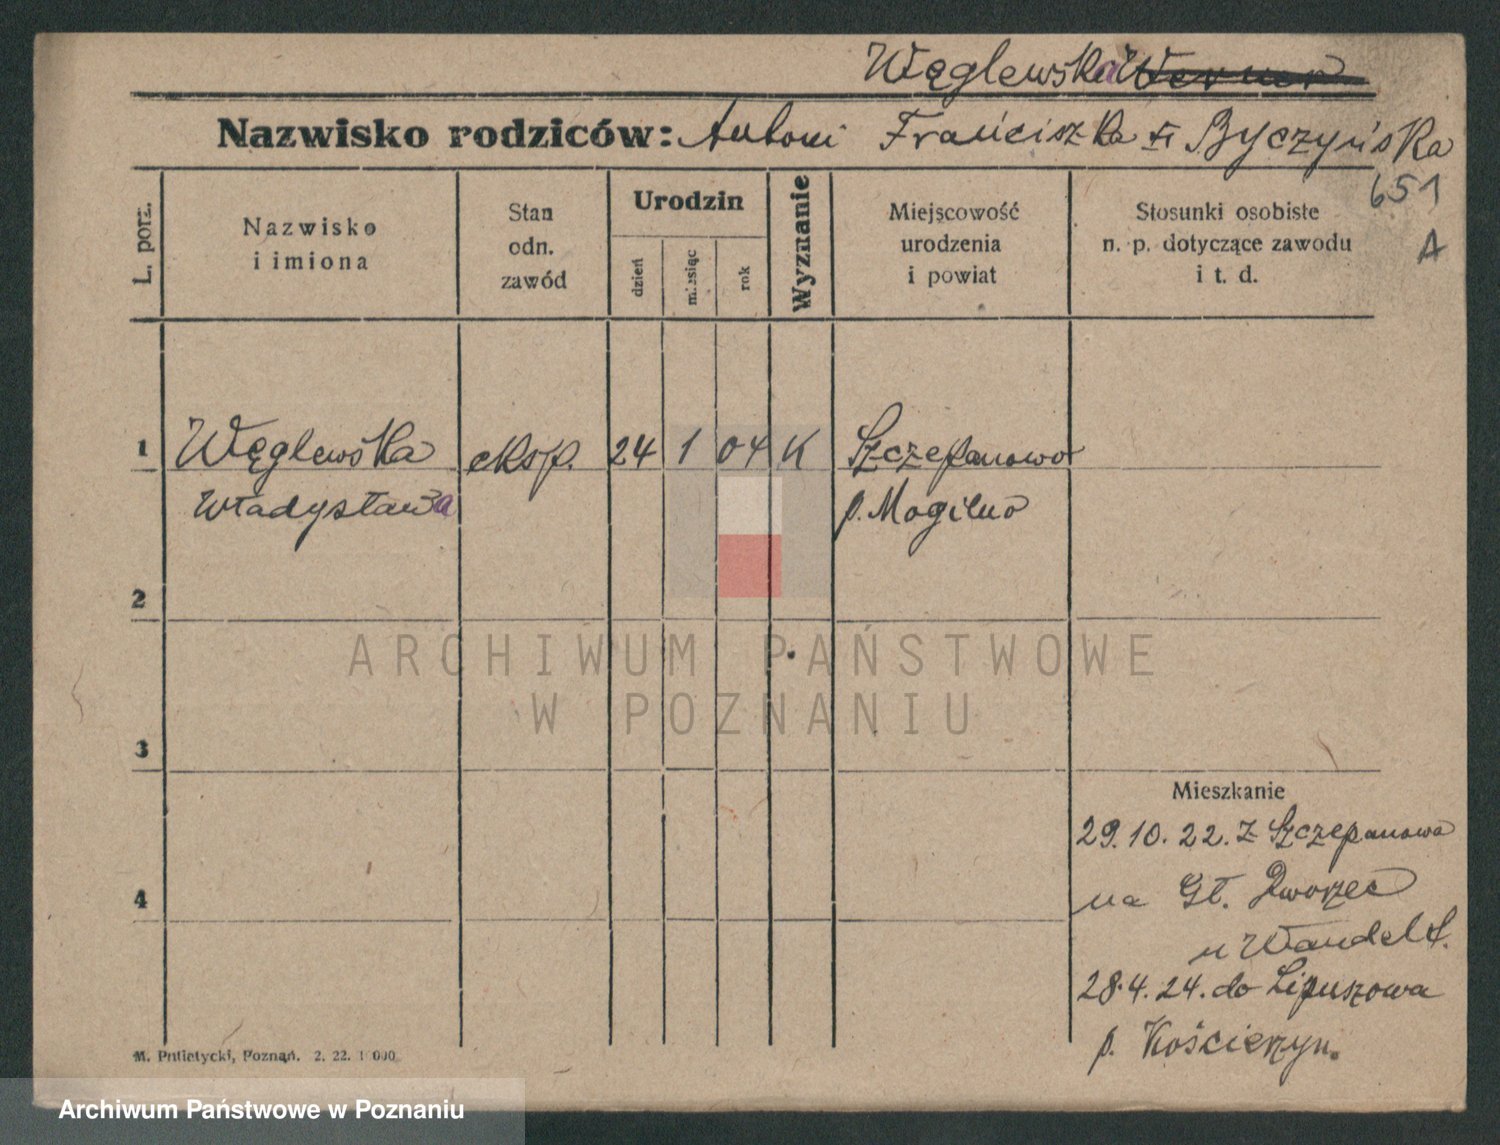 Węglewska Werner
Nazwisko rodziców: Antoni Franciszka z Byczyńska
651
A
L. porz.
Nazwisko
i imiona
Stan
odn.
zawód
Urodzin
dzień
miesiąc
rok
Wyznanie
Miejscowość
urodzenia
i powiat
Stosunki osobiste
n. p. dotyczące zawodu
i t. d.
1 Węglewska eksp. 24 1 04 K Szczepanowo
Władysława p. Mogilno
2
3
4
ARCHIWUM PAŃSTWOWE
W POZNANIU
Mieszkanie
29.10.22. z Szczepanowa
na Gł. Dworzec
u Wandelt.
28.4.24. do Lipuszowa
p. Kościerzyn.
M. Putiatycki, Poznań. 2. 22. 1 000
Archiwum Państwowe w Poznaniu